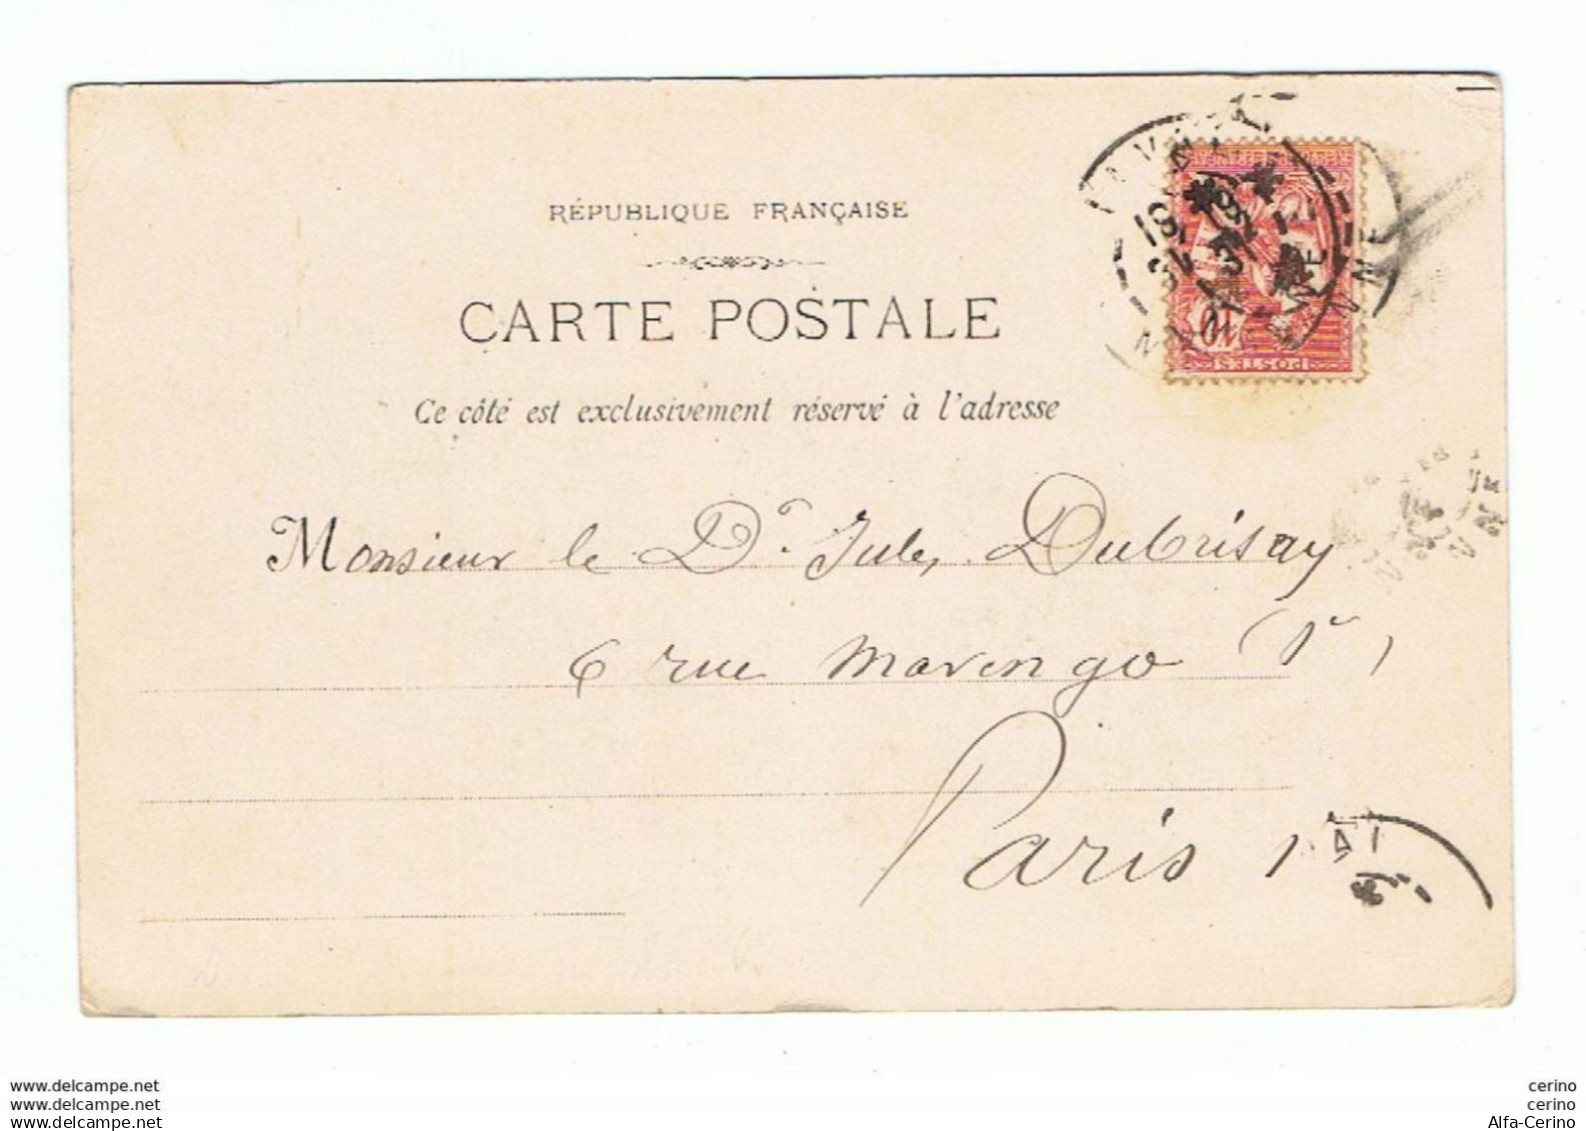 RÉPUBLIQUE FRANÇAISE
CARTE POSTALE
Ce côté est exclusivement réservé à l'adresse
10
POSTES
Monsieur le Dr. Jules Dubrisay
6 rue Marengo (1r)
Paris
www.delcampe.net
www.delcampe.net
www.delcampe.net
cerino
cerino
Alfa-Cerino